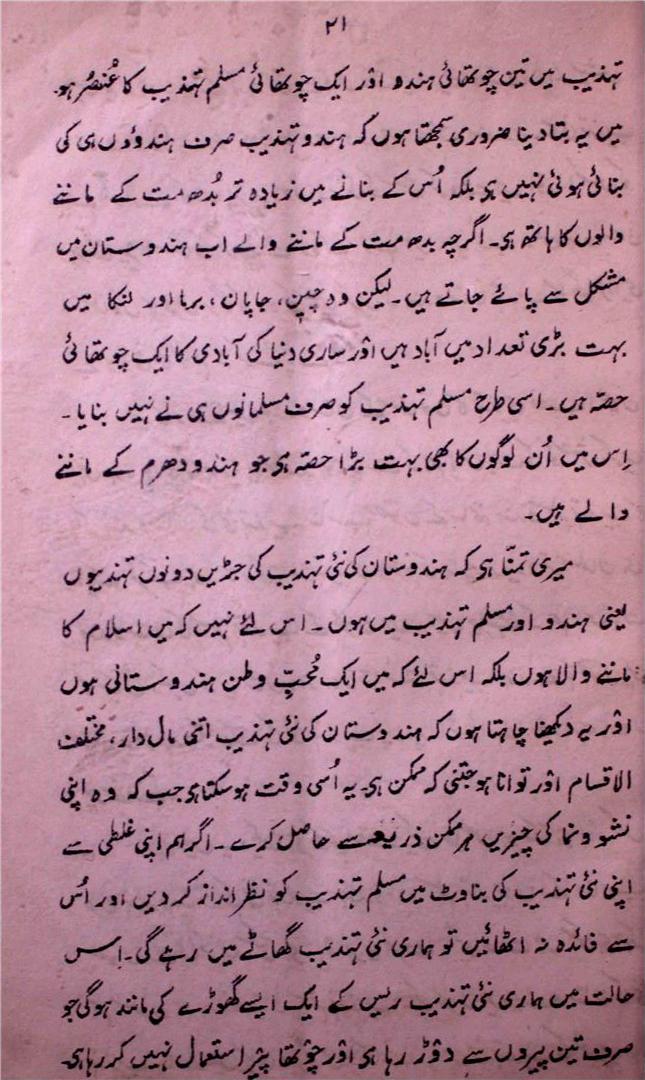 ۲۱
تہذیب میں تین چوتھائی ہندو اور ایک چوتھائی مسلم تہذیب کا عُنصرُ ہو۔
میں یہ بتا دینا ضروری سمجھتا ہوں کہ ہندو تہذیب صرف ہندوؤں ہی کی
بنائی ہوئی نہیں ہی بلکہ اُس کے بنانے میں زیادہ تر بُدھ مت کے ماننے
والوں کا ہاتھ ہی۔ اگرچہ بدھ مت کے ماننے والے اب ہندوستان میں
مشکل سے پائے جاتے ہیں۔ لیکن وہ چین، جاپان، برما اور لنکا میں
بہت بڑی تعداد میں آباد ہیں اور ساری دنیا کی آبادی کا ایک چوتھائی
حصّہ ہیں۔ اسی طرح مسلم تہذیب کو صرف مسلمانوں ہی نے نہیں بنایا۔
اِس میں اُن لوگوں کا بھی بہت بڑا حصّہ ہی جو ہندو دھرم کے ماننے
والے ہیں۔
میری تمنّا ہی کہ ہندوستان کی نئی تہذیب کی جڑیں دونوں تہذیبوں
یعنی ہندو اور مسلم تہذیب میں ہوں۔ اس لئے نہیں کہ میں اسلام کا
ماننے والا ہوں بلکہ اس لئے کہ میں ایک مُحبِّ وطن ہندوستانی ہوں
اور یہ دیکھنا چاہتا ہوں کہ ہندوستان کی نئی تہذیب اتنی مال دار، مختلف
الاقسام اور توانا ہو جتنی کہ ممکن ہی۔ یہ اُسی وقت ہو سکتا ہی جب کہ وہ اپنی
نشو و نما کی چیزیں ہر ممکن ذریعہ سے حاصل کرے۔ اگر ہم اپنی غلطی سے
اپنی نئی تہذیب کی بناوٹ میں مسلم تہذیب کو نظر انداز کر دیں اور اُس
سے فائدہ نہ اٹھائیں تو ہماری نئی تہذیب گھاٹے میں رہے گی۔ اِس
حالت میں ہماری نئی تہذیب ریس کے ایک ایسے گھوڑے کی مانند ہوگی جو
صرف تین پیروں سے دوڑ رہا ہی اور چوتھا پیر استعمال نہیں کر رہا ہی۔